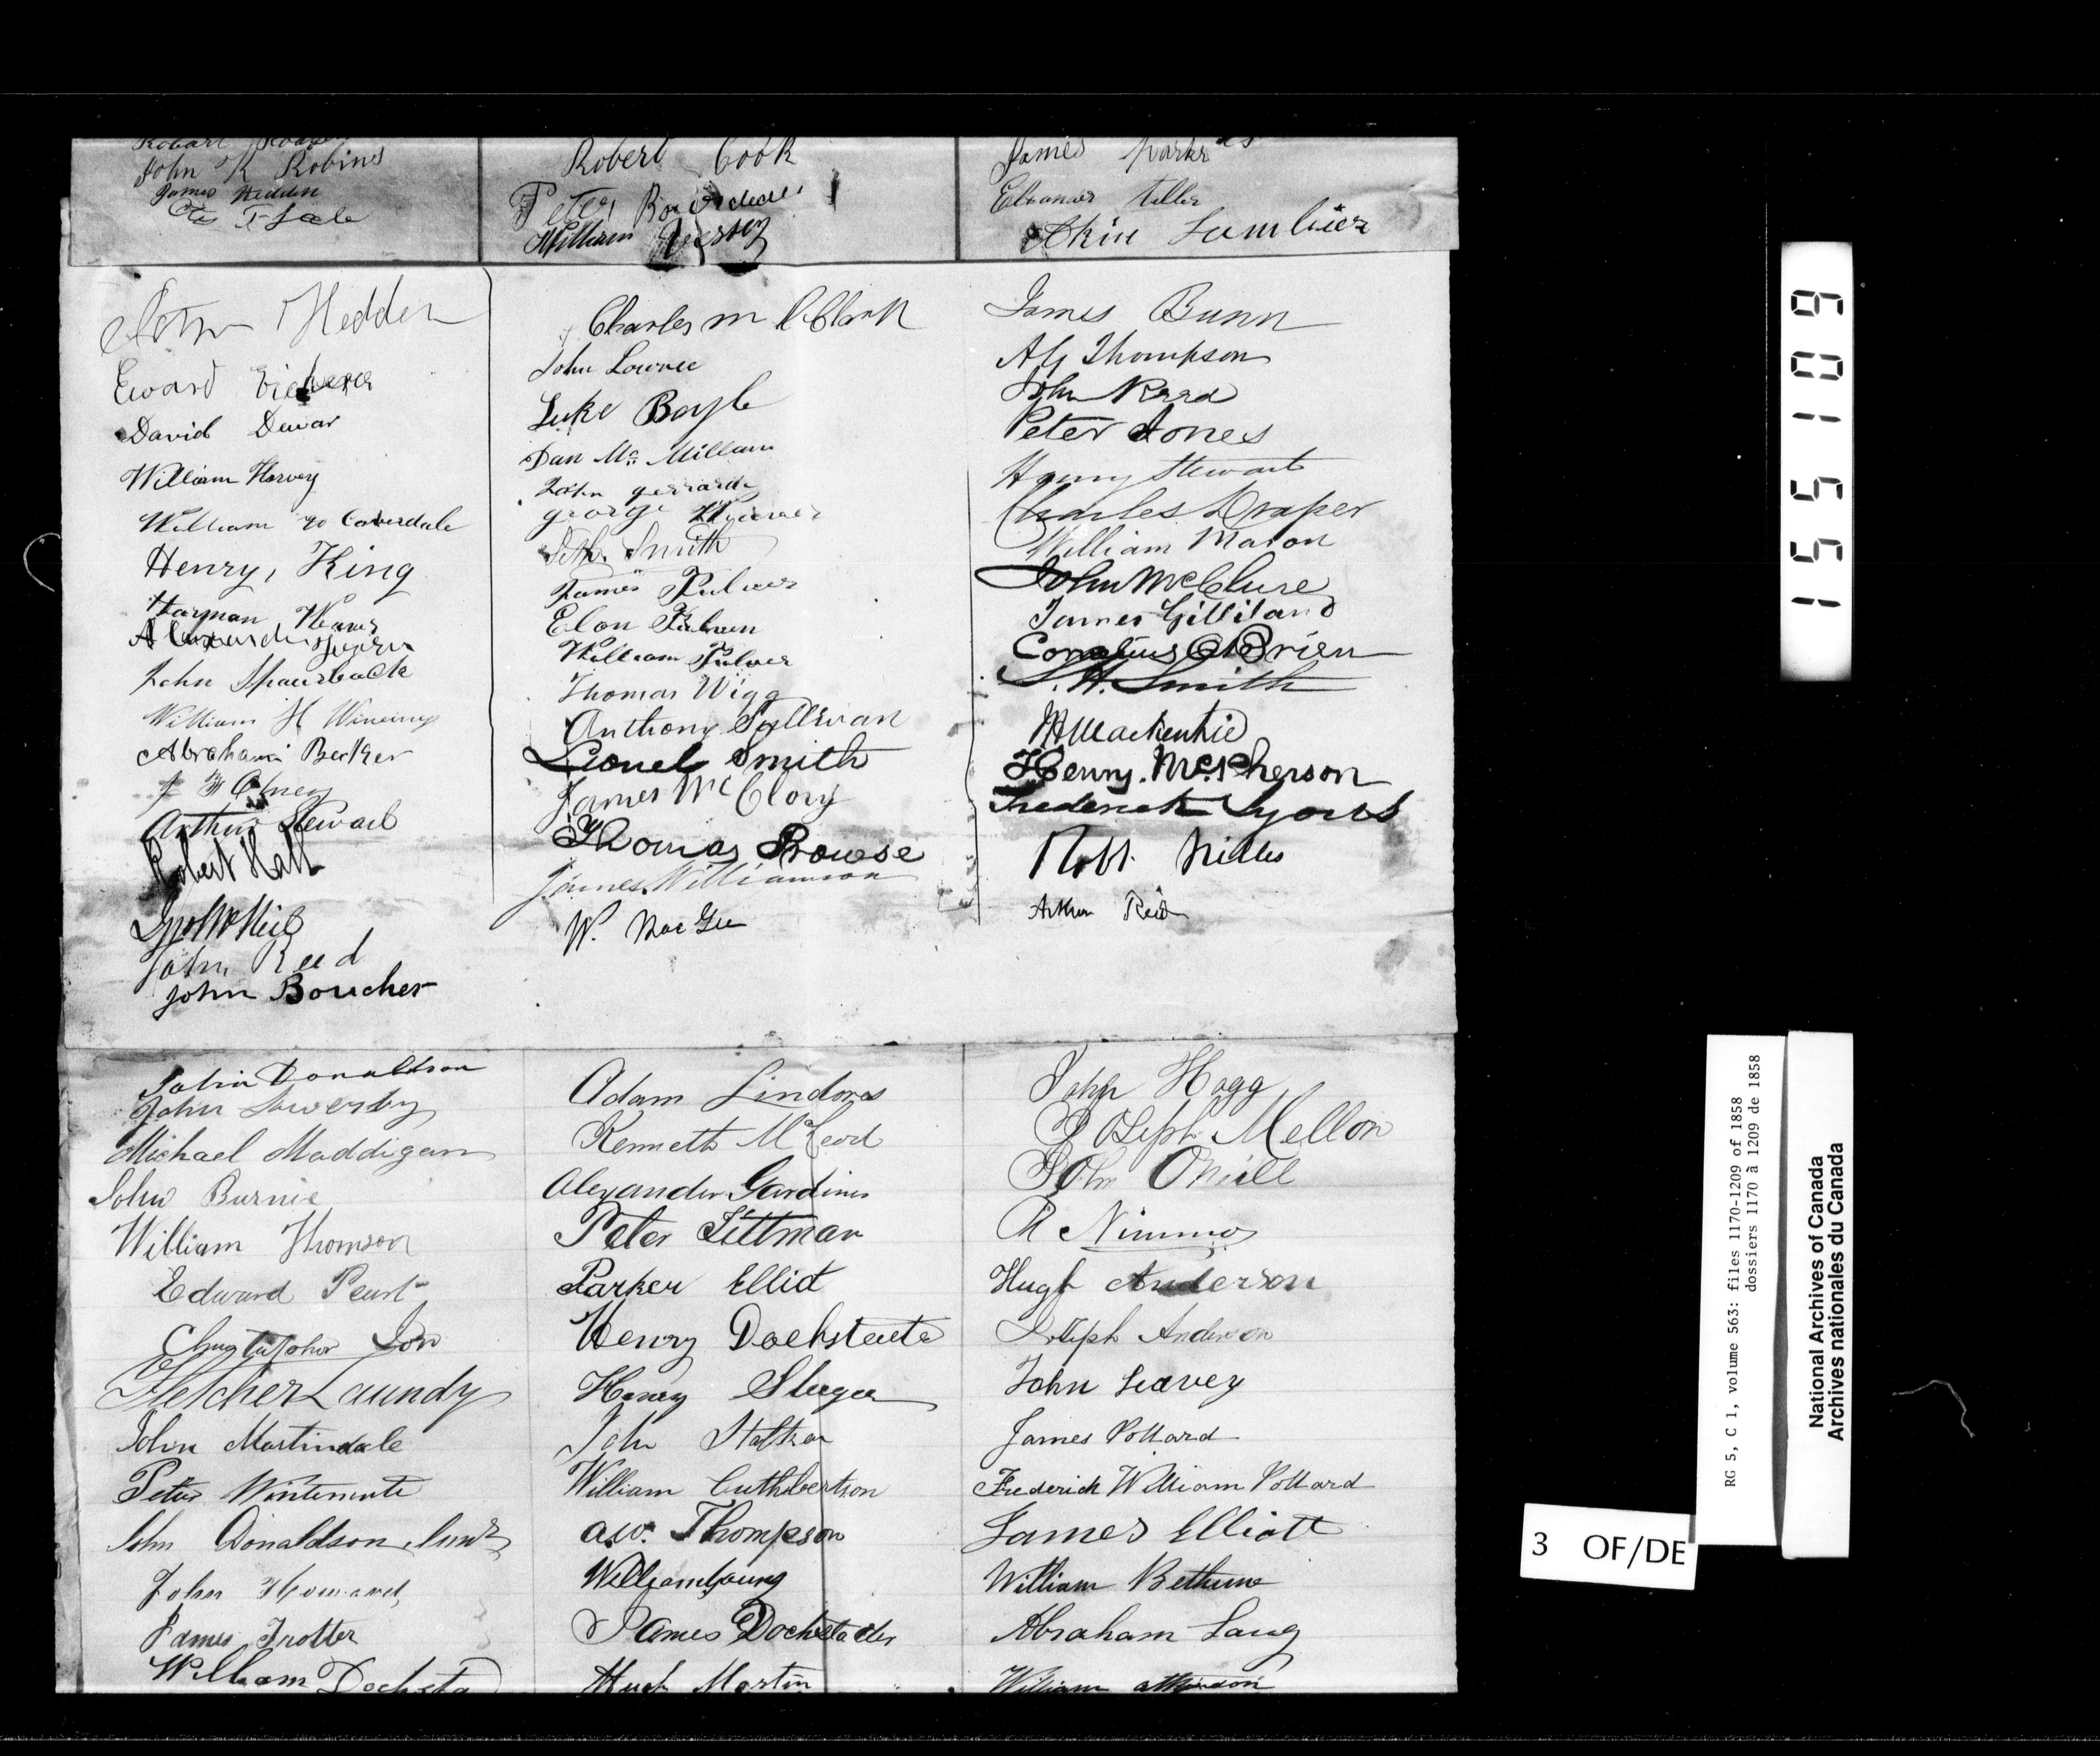 John K Robins
James Hedden
Robert Cook
Peter
William
James
Eleanor
John Hedden
David Dewar
William Harvey
William Coverdale
Henry, King
Harman
John
William H
Abraham Becker
Arthur Stewart
Robert Hall
John Reed
John Boucher
Charles
John Lowree
Luke Boyle
Dan Mc Millan
John gerrard
george
Seth Smith
James Pulver
Elon Pulver
William Pulver
Thomas Wigg
Anthony Sullivan
Lionel Smith
James McClory
Thomas Prowse
James Williamson
W. MacGee
James Bunn
Thompson
John Read
Peter Jones
Henry Stewart
Charles Draper
William Mason
John McClure
James Gilliland
Cornelius OBrien
S. H. Smith
Mackenzie
Henry. McPherson
Frederick Lyons
Robt. Nilles
Arthur Reid
John Donaldson
John Sowerby
Michael Maddigan
John Burnie
William Thomson
Edward Peart
Christopher Lon
Fletcher Laundy
John Martindale
Peter Wintemute
John Donaldson Junr
John Howard
James Trotter
William Dochsta
Adam Lindores
Kenneth McLeod
Alexander Gardiner
Peter Sittman
Parker Elliot
Henry Dochstater
Henry
John
William Cuthbertson
A.W. Thompson
William Young
James Dochstader
Hugh Martin
John Hogg
Joseph Mellon
John ONeill
R Nimmo
Hugh Anderson
Joseph Anderson
John Seavey
James Pollard
Frederick William Pollard
James Elliott
William Bethune
Abraham Laug
William atkinson
155109
RG 5, C 1, volume 563: files 1170-1209 of 1858
dossiers 1170 à 1209 de 1858
National Archives of Canada
Archives nationales du Canada
3 OF/DE